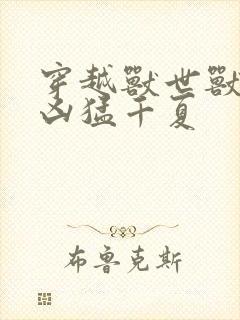 穿越獸世獸
凶猛千夏
布魯克斯